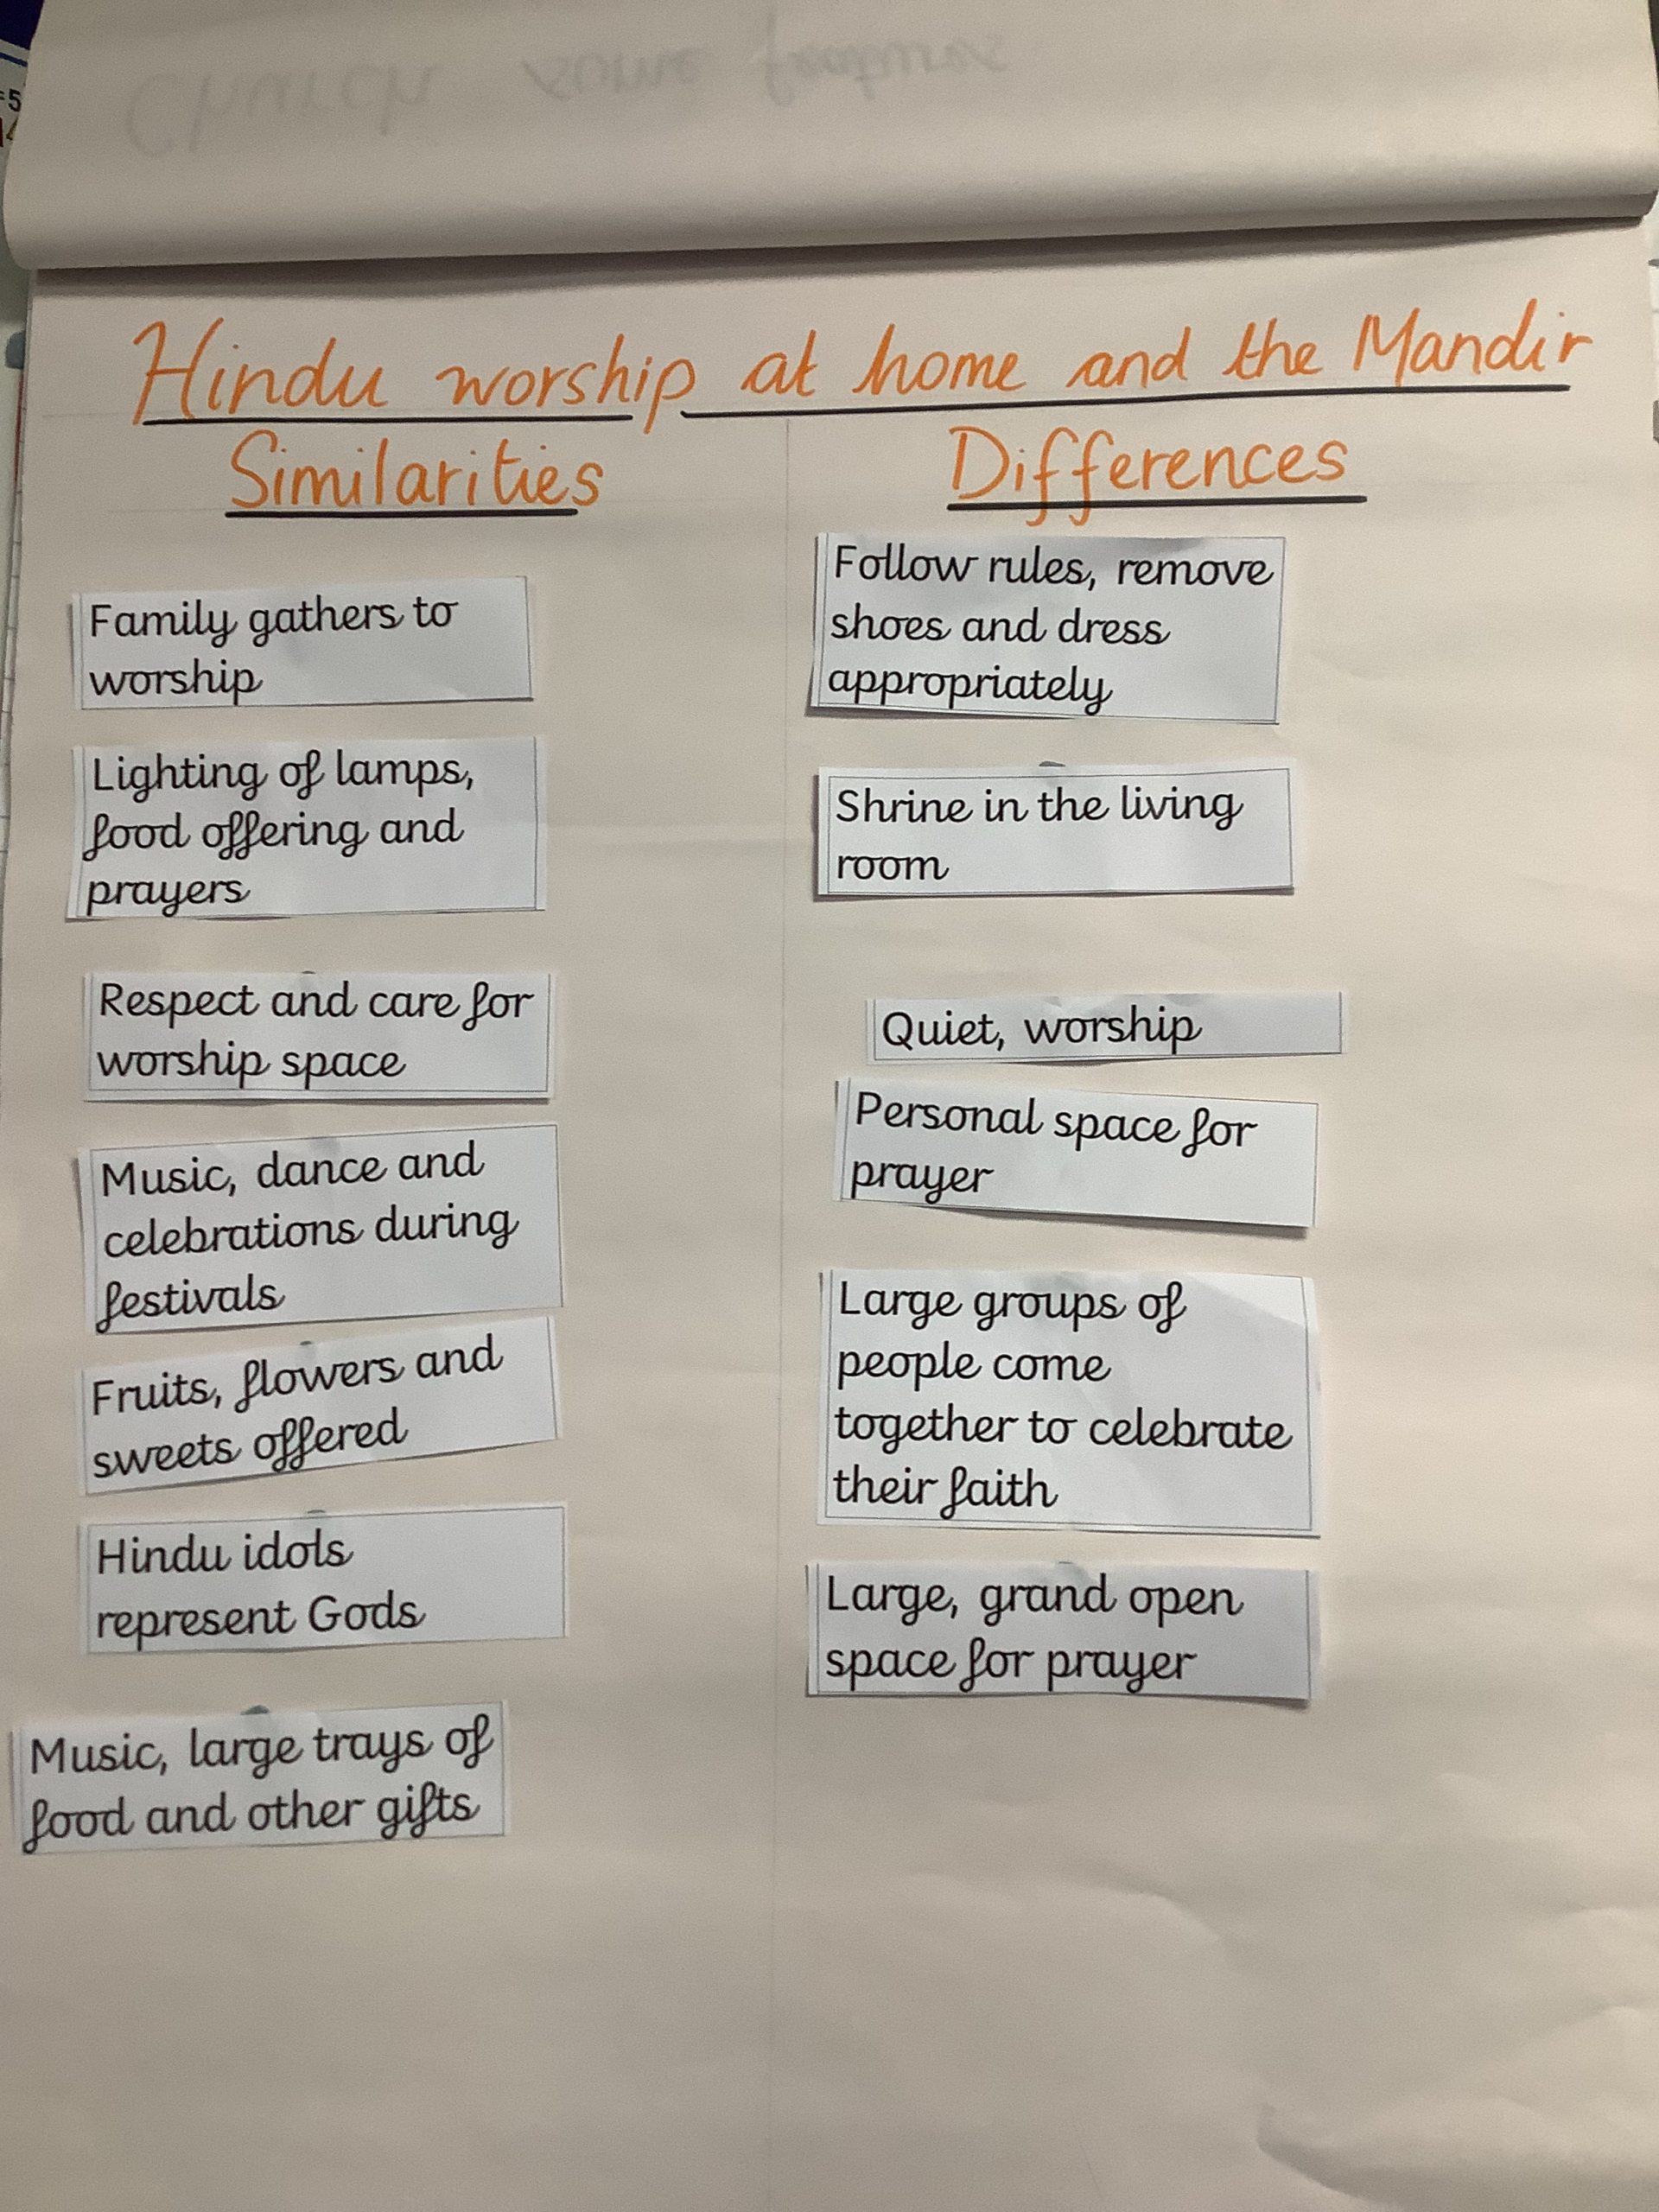 Church some features
Hindu worship at home and the Mandir
Similarities
Family gathers to
worship
Lighting of lamps,
food offering and
prayers
Respect and care for
worship space
Music, dance and
celebrations during
festivals
Fruits, flowers and
sweets offered
Hindu idols
represent Gods
Music, large trays of
food and other gifts
Differences
Follow rules, remove
shoes and dress
appropriately
Shrine in the living
room
Quiet, worship
Personal space for
prayer
Large groups of
people come
together to celebrate
their faith
Large, grand open
space for prayer